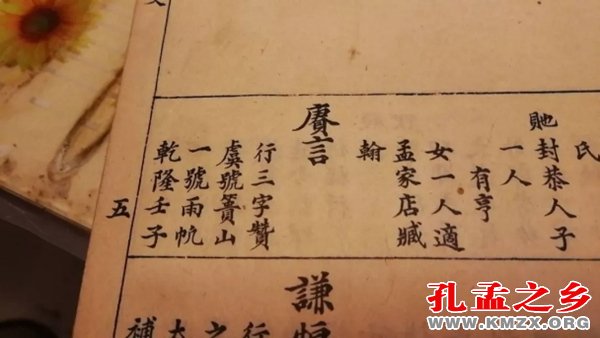 氏
貤封恭人子
一人
有亨
女一人適
孟家店臧
翰
賡言
行三字贊
虞號簣山
一號雨帆
乾隆壬子
五
謙恒
行
之
大
補
孔孟之乡
WWW.KMZX.ORG